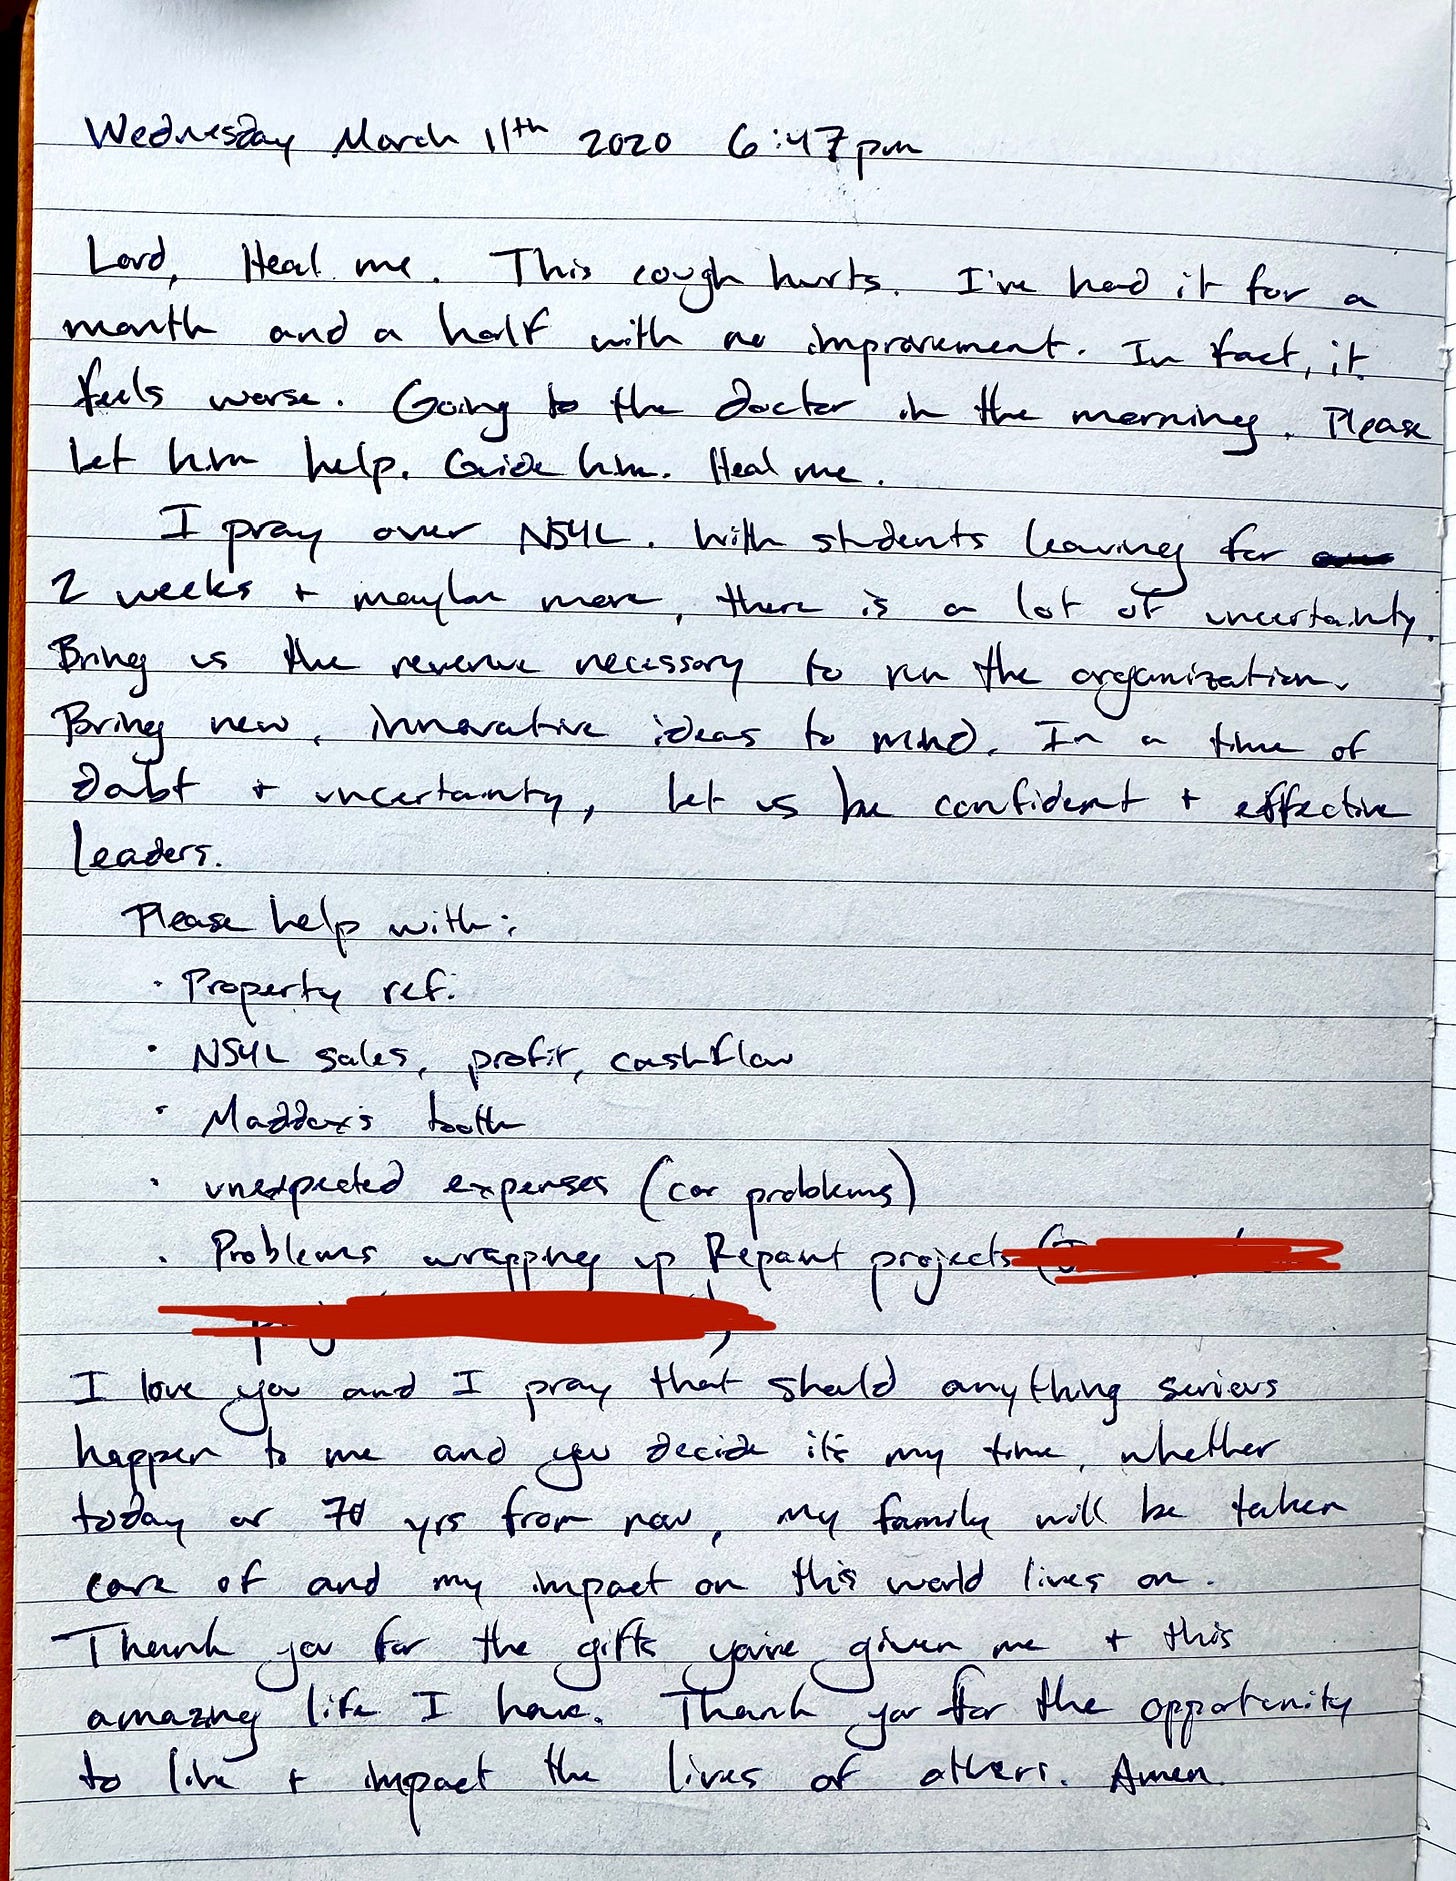 Wednesday March 11th 2020 6:47pm
Lord, Heal me. This cough hurts. I've had it for a
month and a half with no improvement. In fact, it
feels worse. Going to the doctor in the morning. Please
let him help. Guide him. Heal me.
I pray over NSYL. With students leaving for
2 weeks + maybe more, there is a lot of uncertainty.
Bring us the revenue necessary to run the organization.
Bring new, innovative ideas to mind. In a time of
doubt + uncertainty, let us be confident + effective
leaders.
Please help with:
· Property ref.
· NSYL sales, profit, cashflow
· Maddox's tooth
· unexpected expenses (car problems)
· Problems wrapping up Repaint projects
I love you and I pray that should anything serious
happen to me and you decide it's my time, whether
today or 70 yrs from now, my family will be taken
care of and my impact on this world lives on.
Thank you for the gifts you've given me + this
amazing life I have. Thank you for the opportunity
to live + impact the lives of others. Amen.